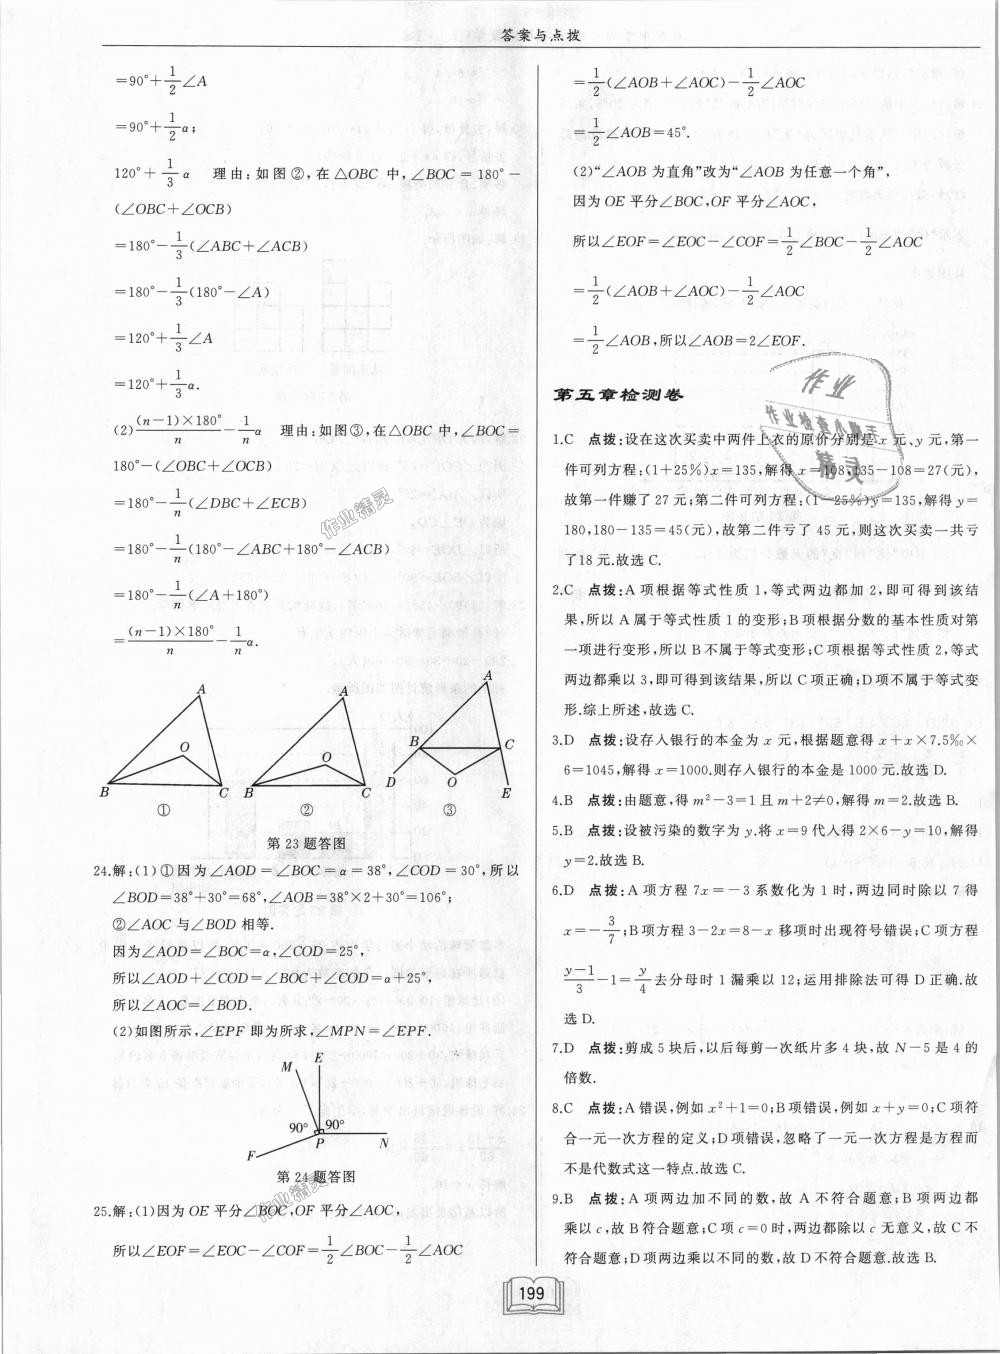 答案与点拨
=90°+1/2∠A
=90°+1/2α;
120°+1/3α 理由:如图②,在△OBC中,∠BOC=180°-
(∠OBC+∠OCB)
=180°-1/3(∠ABC+∠ACB)
=180°-1/3(180°-∠A)
=120°+1/3∠A
=120°+1/3α.
(2)(n-1)×180°/n-1/nα 理由:如图③,在△OBC中,∠BOC=
180°-(∠OBC+∠OCB)
=180°-1/n(∠DBC+∠ECB)
=180°-1/n(180°-∠ABC+180°-∠ACB)
=180°-1/n(∠A+180°)
=(n-1)×180°/n-1/nα.
A
O
B
C
①
A
O
B
C
②
A
B
C
D
O
E
③
第23题答图
24.解:(1)①因为∠AOD=∠BOC=α=38°,∠COD=30°,所以
∠BOD=38°+30°=68°,∠AOB=38°×2+30°=106°;
②∠AOC与∠BOD相等.
因为∠AOD=∠BOC=α,∠COD=25°,
所以∠AOD+∠COD=∠BOC+∠COD=α+25°,
所以∠AOC=∠BOD.
(2)如图所示,∠EPF即为所求,∠MPN=∠EPF.
M
E
90°
90°
F
P
N
第24题答图
25.解:(1)因为OE平分∠BOC,OF平分∠AOC,
所以∠EOF=∠EOC-∠COF=1/2∠BOC-1/2∠AOC
=1/2(∠AOB+∠AOC)-1/2∠AOC
=1/2∠AOB=45°.
(2)“∠AOB为直角”改为“∠AOB为任意一个角”,
因为OE平分∠BOC,OF平分∠AOC,
所以∠EOF=∠EOC-∠COF=1/2∠BOC-1/2∠AOC
=1/2(∠AOB+∠AOC)-1/2∠AOC
=1/2∠AOB,所以∠AOB=2∠EOF.
第五章检测卷
1.C 点拨:设在这次买卖中两件上衣的原价分别是x元、y元,第一
件可列方程:(1+25%)x=135,解得x=108,135-108=27(元),
故第一件赚了27元;第二件可列方程:(1-25%)y=135,解得y=
180,180-135=45(元),故第二件亏了45元,则这次买卖一共亏
了18元.故选C.
2.C 点拨:A项根据等式性质1,等式两边都加2,即可得到该结
果,所以A属于等式性质1的变形;B项根据分数的基本性质对第
一项进行变形,所以B不属于等式变形;C项根据等式性质2,等式
两边都乘以3,即可得到该结果,所以C项正确;D项不属于等式变
形.综上所述,故选C.
3.D 点拨:设存入银行的本金为x元,根据题意得x+x×7.5‰×
6=1045,解得x=1000.则存入银行的本金是1000元.故选D.
4.B 点拨:由题意,得m²-3=1且m+2≠0,解得m=2.故选B.
5.B 点拨:设被污染的数字为y.将x=9代入得2×6-y=10,解得
y=2.故选B.
6.D 点拨:A项方程7x=-3系数化为1时,两边同时除以7得
x=-3/7;B项方程3-2x=8-x移项时出现符号错误;C项方程
(y-1)/3-1=y/4去分母时1漏乘以12;运用排除法可得D正确.故
选D.
7.D 点拨:剪成5块后,以后每剪一次纸片多4块,故N-5是4的
倍数.
8.C 点拨:A错误,例如x²+1=0;B项错误,例如x+y=0;C项符
合一元一次方程的定义;D项错误,忽略了一元一次方程是方程而
不是代数式这一特点.故选C.
9.B 点拨:A项两边加不同的数,故A不符合题意;B项两边都
乘以c,故B符合题意;C项c=0时,两边都除以c无意义,故C不
符合题意;D项两边乘以不同的数,故D不符合题意.故选B.
199
作业
作业检查小帮手
精灵
作业精灵
作业精灵